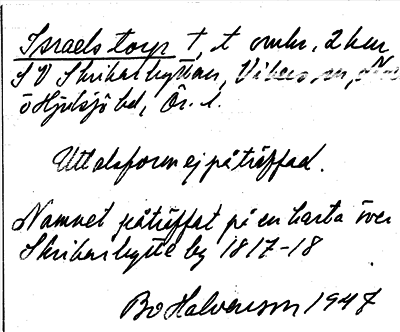 Israelstorp †, t omkr. 2 km
SV Skrikarhyttan, Vikers sn, Nora
o Hjulsjö bd, Ör. l.
Uttalsformen ej påträffad.
Namnet påträffat på en karta över
Skrikarhytte by 1817-18
Bo Halvarsson 1947